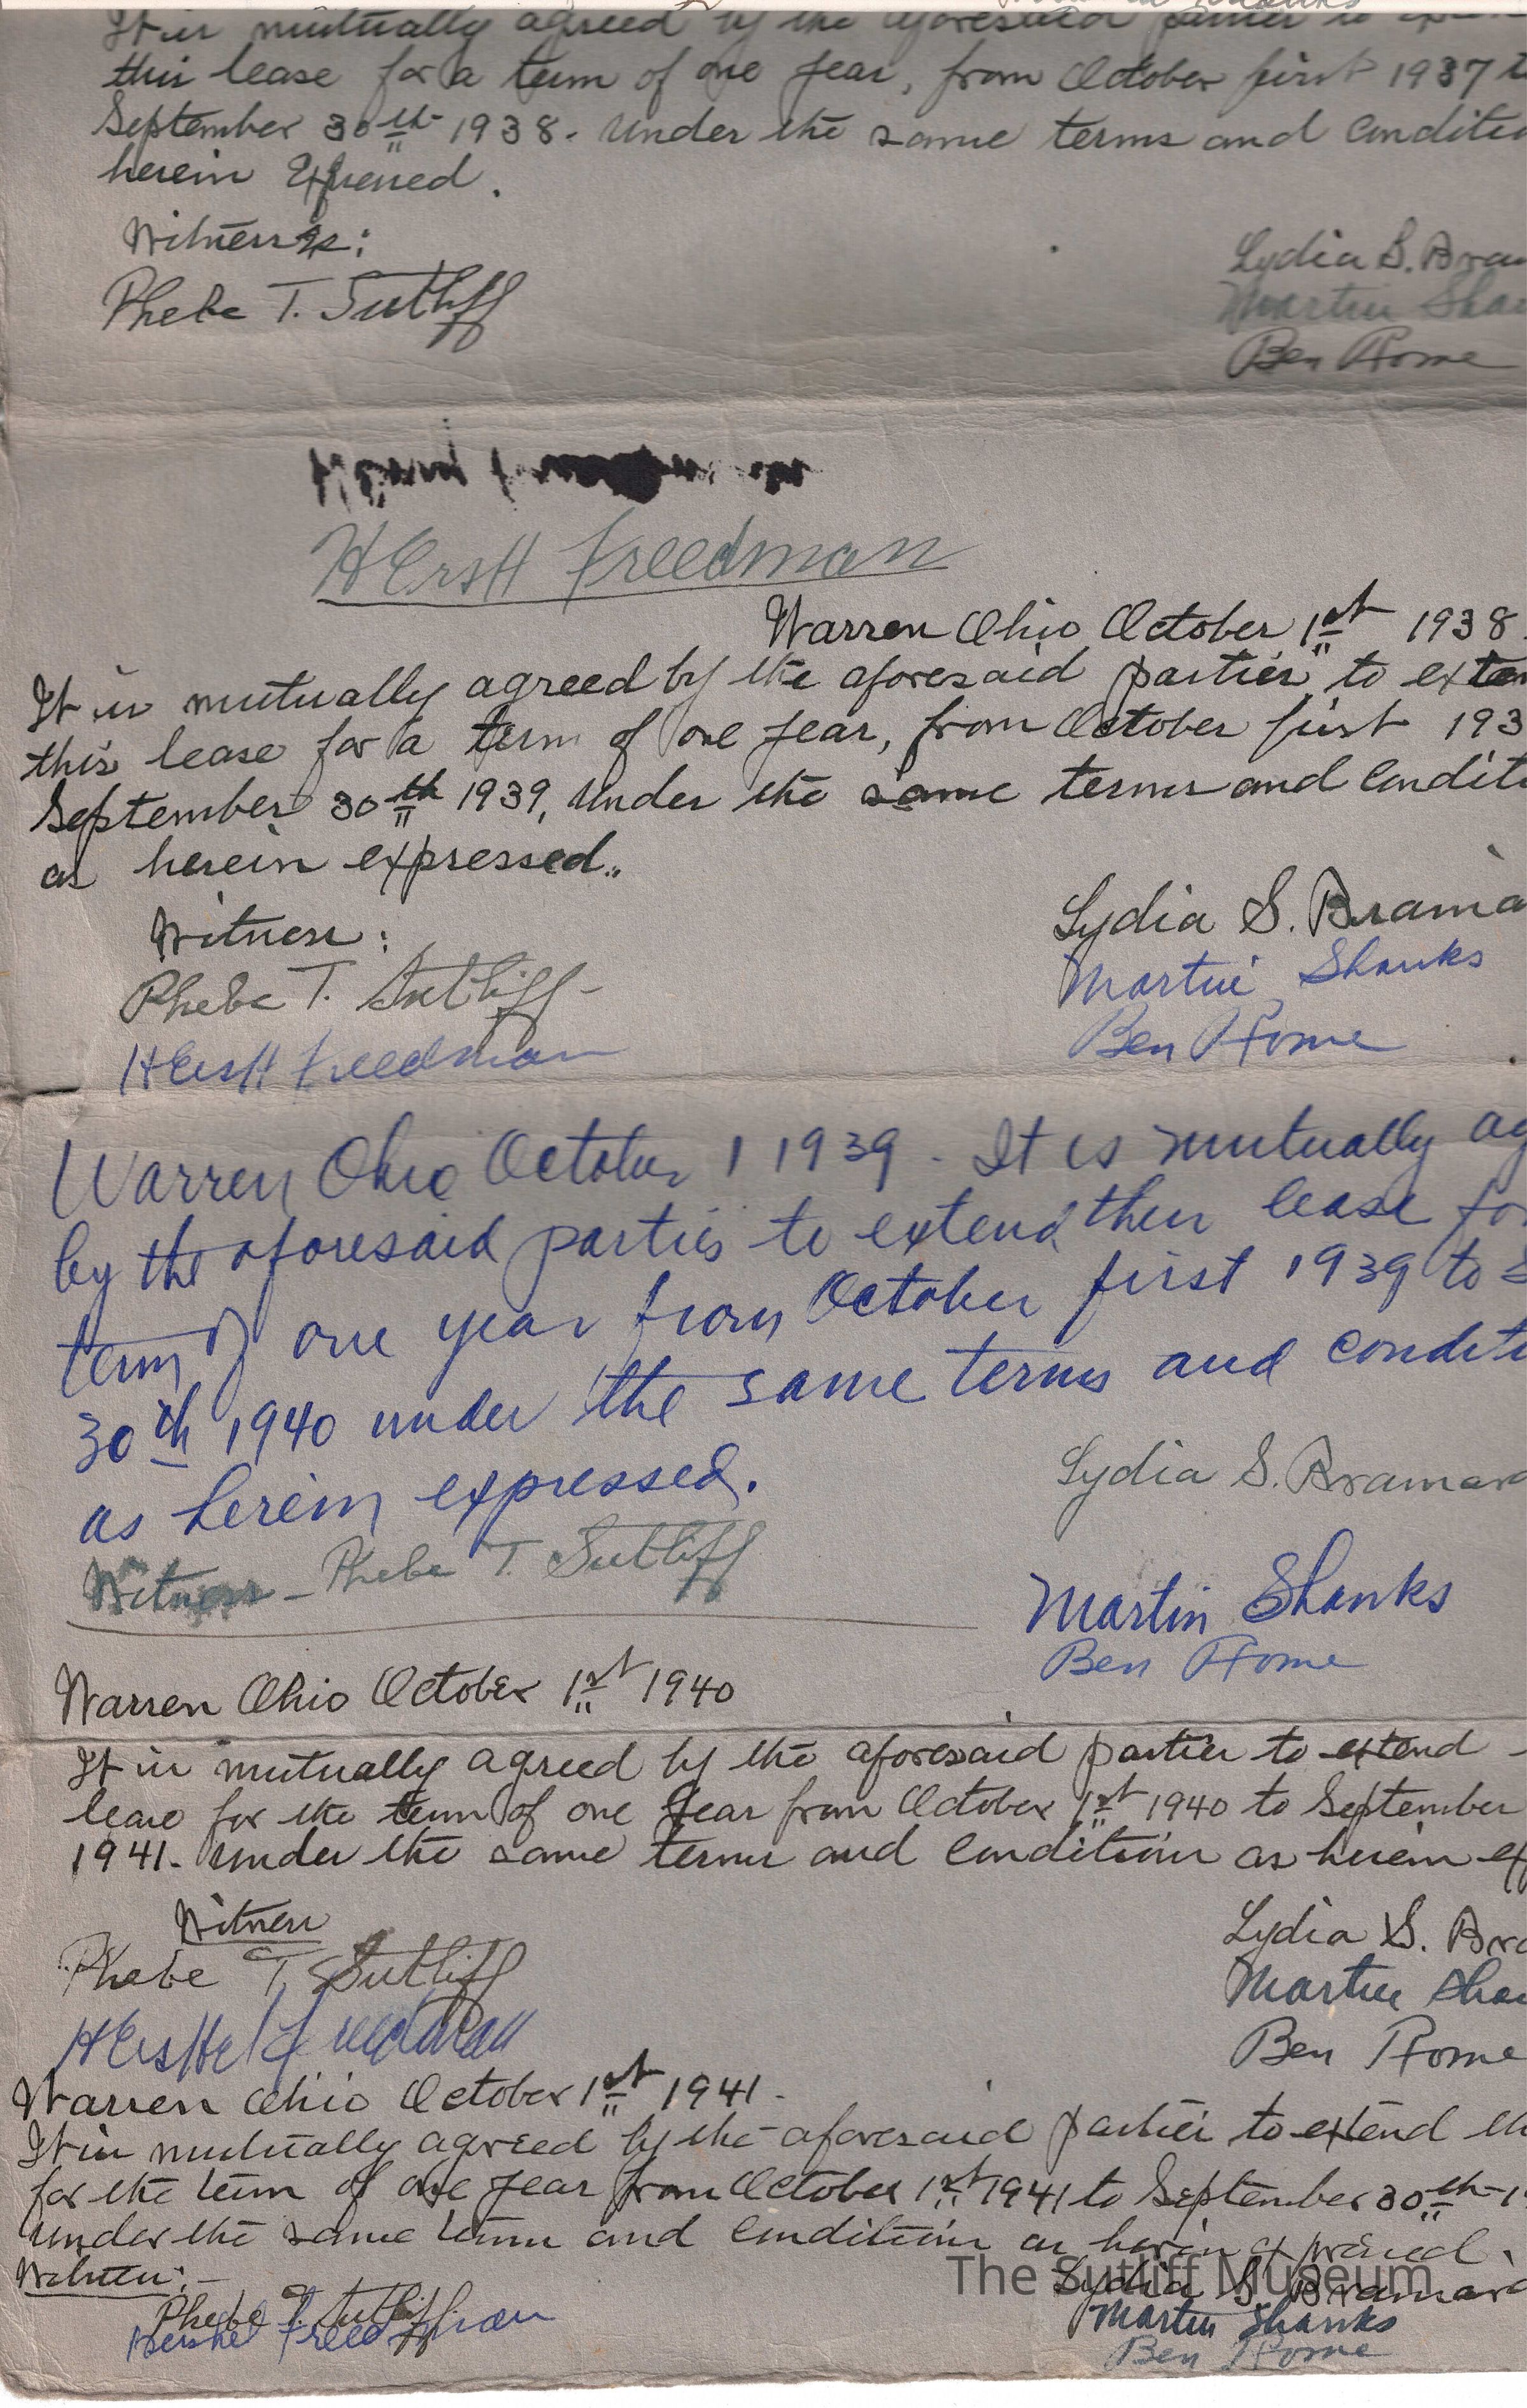 It is mutually agreed by the aforesaid parties to
this lease for a term of one year, from October first 1937 t
September 30th 1938. Under the same terms and conditio
herein Expressed.
Witnesses:
Lydia S. Bra
Phebe T. Sutliff
Martin Sha
Ben Rome
HErsH Freedman
Warren Ohio October 1st 1938.
It is mutually agreed by the aforesaid parties to exten
this lease for a term of one year, from October first 193
September 30th 1939, Under the same terms and conditi
as herein expressed.
Witness:
Lydia S. Braina
Phebe T. Sutliff
Martin Shanks
HErsH Freedman
Ben Rome
Warren Ohio October 1 1939. It is mutually ag
by the aforesaid parties to extend their lease for
term of one year from October first 1939 to S
30th 1940 under the same terms and conditi
as herein expressed.
Lydia S. Brainar
Witness - Phebe T. Sutliff
Martin Shanks
Ben Rome
Warren Ohio October 1st 1940
It is mutually agreed by the aforesaid parties to extend
lease for the term of one year from October 1st 1940 to September
1941. Under the same terms and conditions as herein ex
Witness
Lydia S. Bra
Phebe T. Sutliff
Martin Sha
HErsHel Freedman
Ben Rome
Warren Ohio October 1st 1941.
It is mutually agreed by the aforesaid parties to extend th
for the term of one year from October 1st 1941 to September 30th 1
Under the same terms and conditions as herein expressed.
Witness:
Lydia S. Brainar
Phebe T. Sutliff
Martin Shanks
Hershel Freedman
Ben Rome
The Sutliff Museum